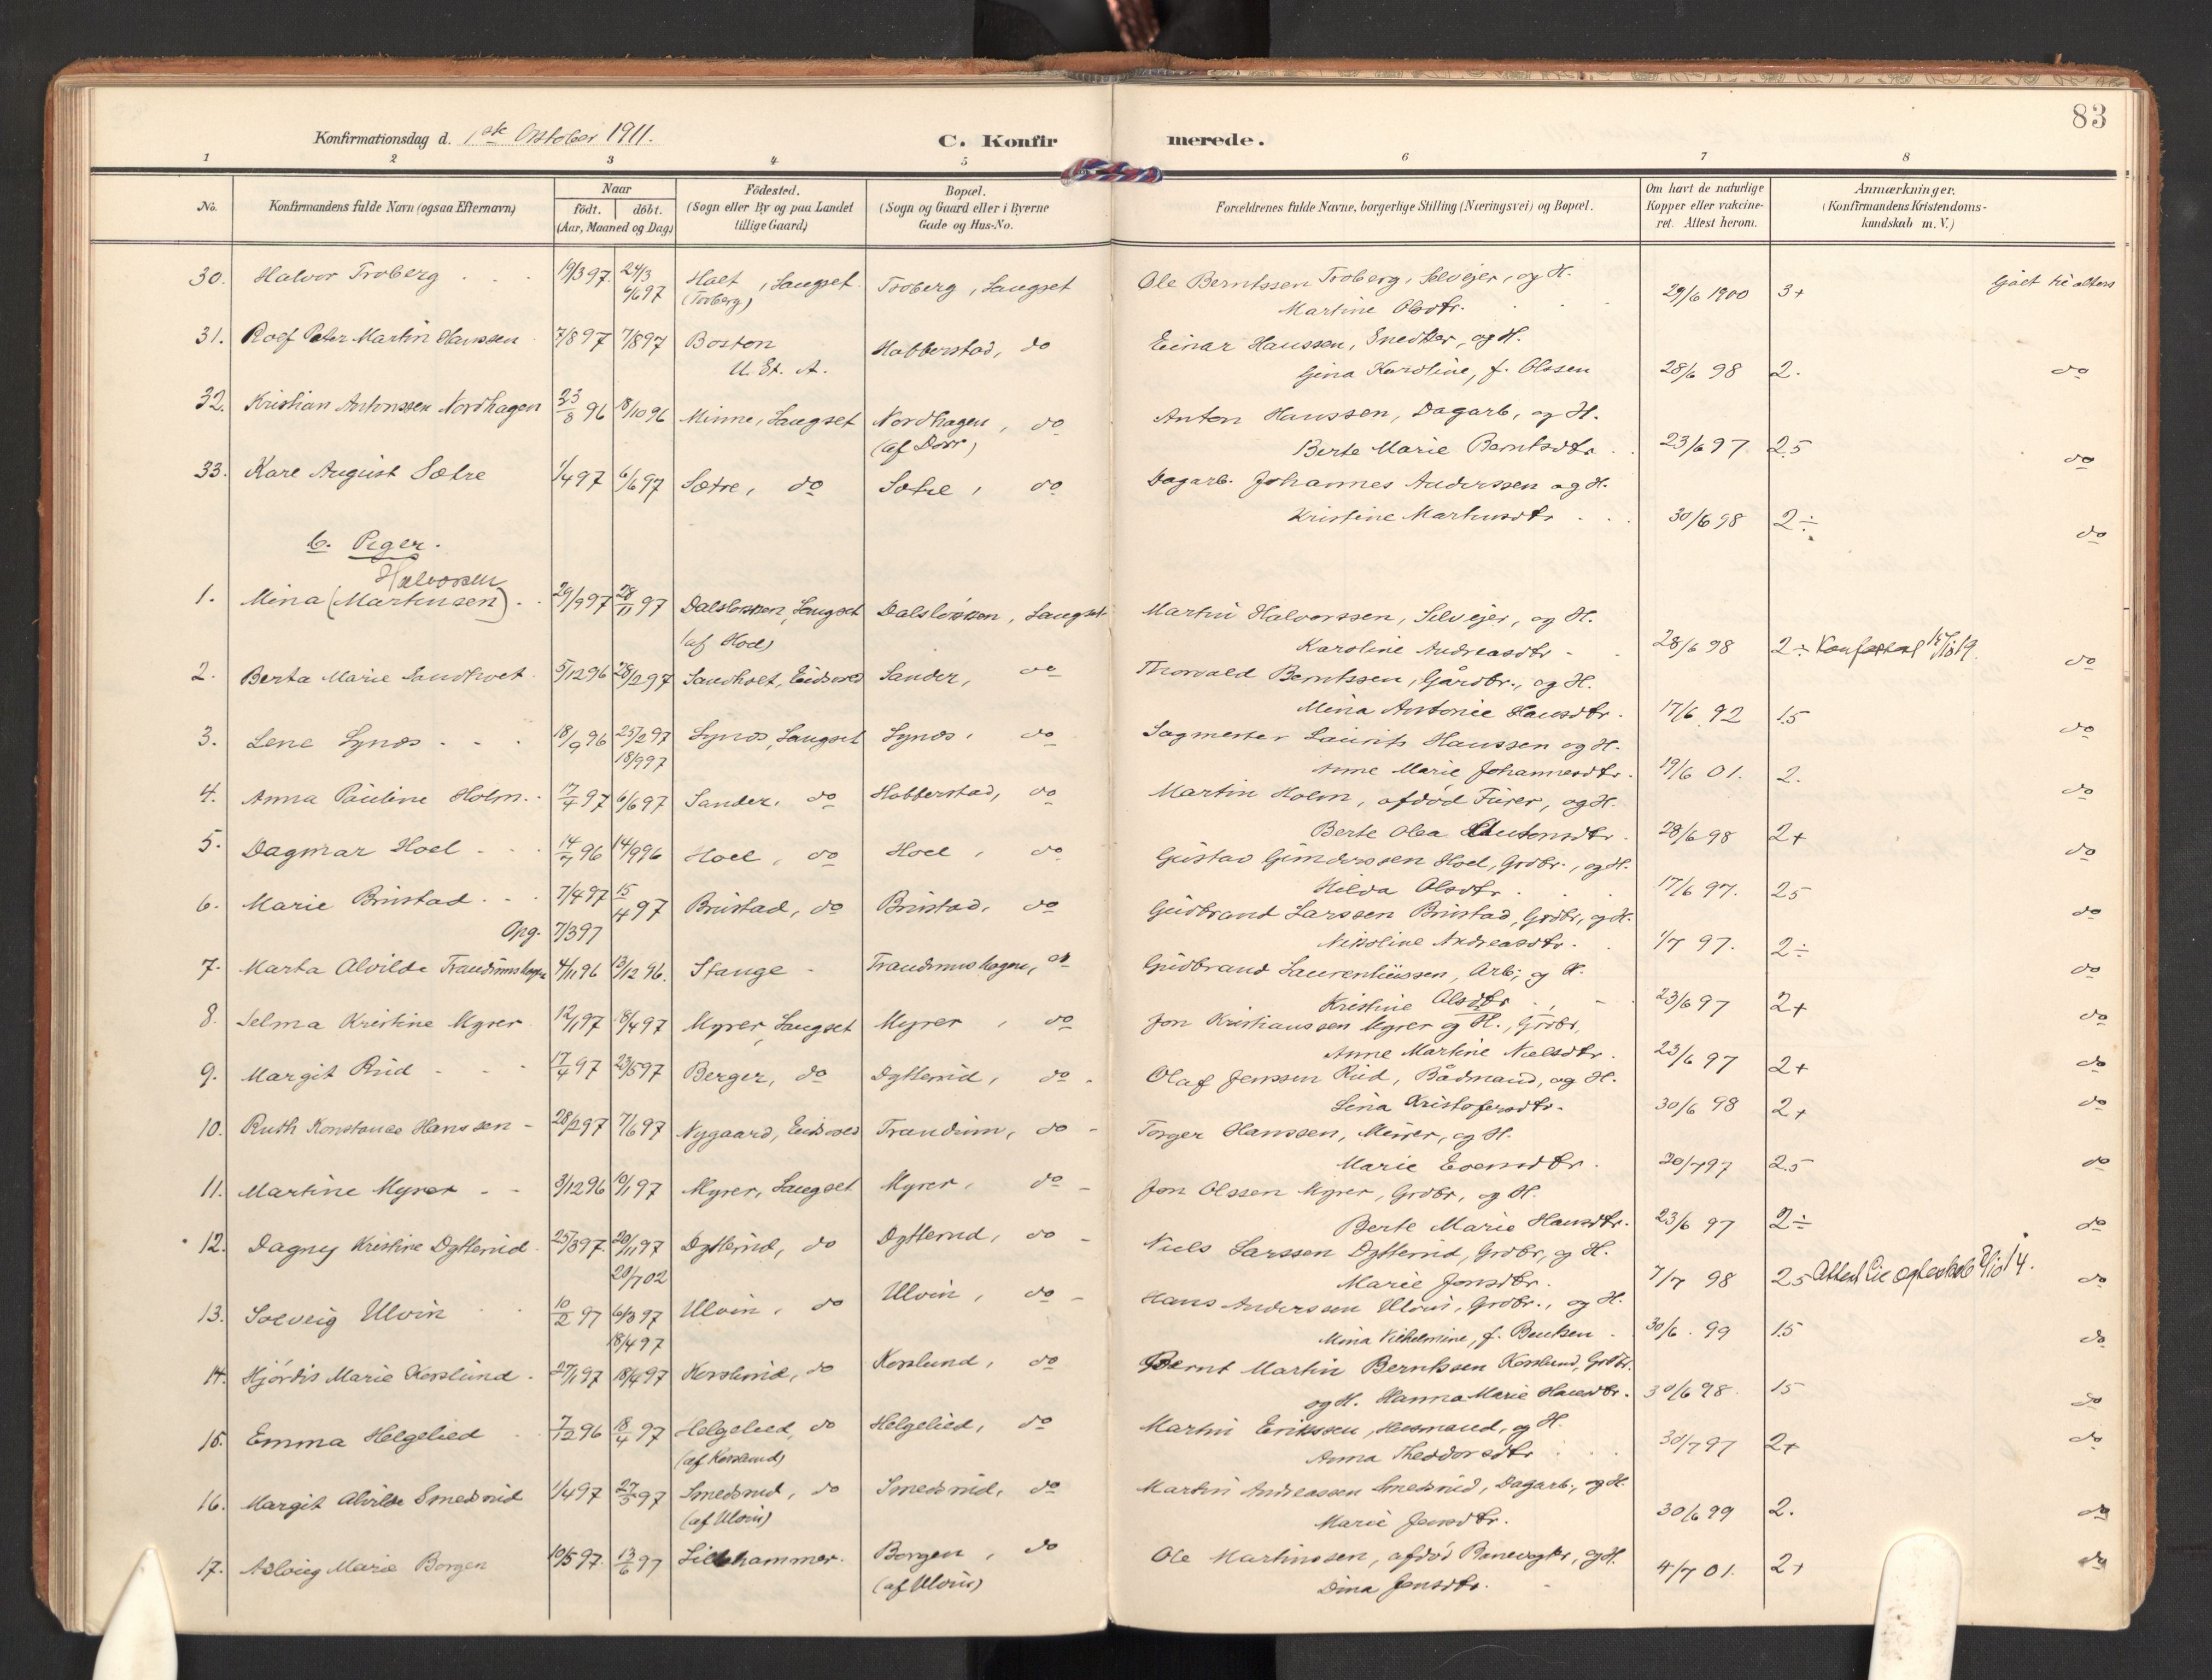 83
Konfirmationsdag d. 1ste Oktober 1911. C. Konfirmerede.
1 2 3 4 5 6 7 8
No. Konfirmandens fulde Navn (ogsaa Efternavn) Naar födt. döbt. (Aar, Maaned og Dag) Födested. (Sogn eller By og paa Landet tillige Gaard) Bopæl. (Sogn og Gaard eller i Byerne Gade og Hus-No. Forældrenes fulde Navne, borgerlige Stilling (Næringsvei) og Bopæl. Om havt de naturlige Kopper eller vakcineret. Attest herom. Anmærkninger. (Konfirmandens Kristendomskundskab m. V.)
30. Halvor Troberg 19/3 97 24/3 Holt, Langset Troberg, Langset Ole Berntssen Troberg, Selvejer, og H. Gået til alters
6/6 97 (Troberg) Martine Olsdtr. 29/6 1900 3+
31. Rolf Peter Martin Hanssen 7/8 97 7/8 97 Boston Habberstad, do Einar Hanssen, Snedker, og H.
U. St. A. Gina Karoline, f. Olssen 28/6 98 2. do
32. Kristian Antonssen Nordhagen 23/8 96 18/10 96 Minne, Langset Nordhagen, do Anton Hanssen, Dagarb, og H.
(af Dorr) Berte Marie Berntsdtr. 23/6 97 2.5 do
33. Karl August Sætre 1/4 97 6/6 97 Sætre, do Sætre, do Dagarb. Johannes Anderssen og H.
Kristine Martinsdtr 30/6 98 2÷ do
b. Piger.
Halvorsen
1. Mina (Martinsen) 29/9 97 28/11 97 Dalsløkken, Langset Dalsløkken, Langset Martin Halvorssen, Selvejer, og H.
(af Hoel) Karoline Andreasdtr 28/6 98 2÷ do
2. Berta Marie Sandholt 5/12 96 28/2 97 Sandholt, Eidsvold Sander, do Thorvald Berntssen, Gårdbr., og H.
Mina Antonie Hansdtr. 17/6 92 1.5 do
3. Lene Synds 18/9 96 25/2 97 Synds, Langset Synds, do Sagmester Laurits Hanssen og H.
18/9 97 Anne Marie Johannesdtr. 19/6 01. 2. do
4. Anna Pauline Holm. 17/4 97 6/6 97 Sander, do Habberstad, do Martin Holm, afdød Furer, og H.
Berte Olea Antonsdtr. 28/6 98 2+ do
5. Dagmar Hoel 14/7 96 14/9 96 Hoel, do Hoel, do Gustav Gunderssen Hoel, Grdbr., og H.
Hilda Olsdtr. 17/6 97. 2.5 do
6. Marie Brustad 7/4 97 15/4 97 Brustad, do Brustad, do Gudbrand Larssen Brustad, Grdbr, og H.
Opg. 7/3 97 Nikoline Andreasdtr. 1/7 97. 2÷ do
7. Marta Alvilde Traudumshagen 4/11 96 13/12 96. Stange Traudumshagen, do Gudbrand Laurentiussen, Arb., og H.
Kristine Olsdtr 23/6 97 2+ do
8. Selma Kristine Myrer 12/1 97 18/4 97 Myrer, Langset Myrer, do Jon Kristianssen Myrer og H., Grdbr,
Anne Martine Nielsdtr. 23/6 97 2+ do
9. Margit Rud 17/4 97 23/5 97 Berger, do Dytterud, do Olaf Jenssen Rud, Bådmand, og H.
Lina Kristofersdtr. 30/6 98 2+ do
10. Ruth Konstance Hanssen 28/2 97 7/6 97 Nygaard, Eidsvold Traudum, do Torger Hanssen, Murer, og H.
Marie Evensdtr. 30/7 97 2.5 do
11. Martine Myrer 3/12 96 10/1 97 Myrer, Langset Myrer, do Jon Olssen Myrer, Grdbr, og H.
Berte Marie Hansdtr. 23/6 97 2÷ do
12. Dagny Kristine Dytterud 25/3 97. 20/11 97 Dytterud, do Dytterud, do Niels Larssen Dytterud, Grdbr, og H.
20/7 02 Marie Jonsdtr. 7/7 98 2.5 Attest til ægteskab 2/10 14. do
13. Solveig Ulvin 10/2 97 6/3 97 Ulvin, do Ulvin, do Hans Anderssen Ulvin, Grdbr., og H.
18/4 97 Mina Vilhelmine, f. Bentsen 30/6. 99 1.5 do
14. Hjördis Marie Korslund 27/1 97 18/4 97 Korslund, do Korslund, do Bernt Martin Berntssen Korslund, Grdbr.
og H. Hanna Marie Hansdtr. 30/6 98. 1.5 do
15. Emma Helgelied 7/12 96 18/4 97 Helgelied, do Helgelied, do Martin Erikssen, Husmand, og H.
(af Korslund) Anna Theodorsdtr 30/7 97 2+ do
16. Margit Alvilde Smedsrud 1/4 97 27/5 97 Smedsrud, do Smedsrud, do Martin Andreassen Smedsrud, Dagarb., og H.
(af Ulvin) Marie Jensdtr. 30/6 99 2. do
17. Aslaug Marie Borgen 10/5 97. 13/6 97 Lillehammer. Borgen, do Ole Martinssen, afdød Banevogter, og H.
(af Ulvin) Dina Jensdtr. 4/7 01. 2+ do